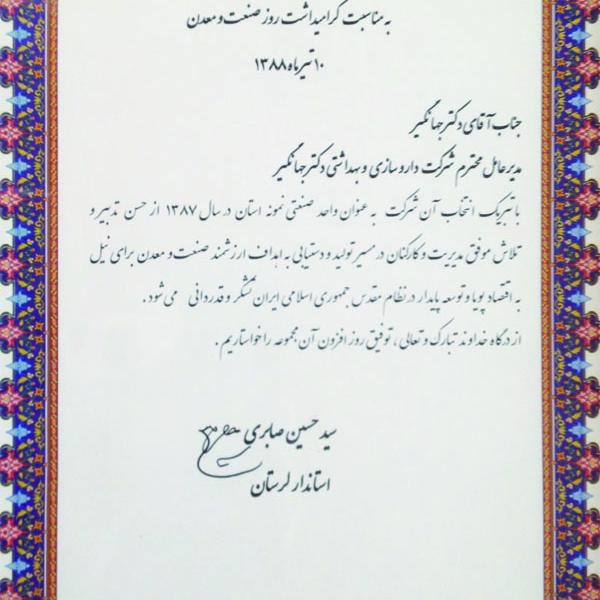 به مناسبت گرامیداشت روز صنعت و معدن
۱۰ تیرماه ۱۳۸۸
جناب آقای دکتر جهانگیر
مدیرعامل محترم شرکت داروسازی و بهداشتی دکتر جهانگیر
با تبریک انتخاب آن شرکت به عنوان واحد صنعتی نمونه استان در سال ۱۳۸۷ از حسن تدبیر و
تلاش موفق مدیریت و کارکنان در مسیر تولید و دستیابی به اهداف ارزشمند صنعت و معدن برای نیل
به اقتصاد پویا و توسعه پایدار در نظام مقدس جمهوری اسلامی ایران تشکر و قدردانی می شود .
از درگاه خداوند تبارک و تعالی ، توفیق روز افزون آن مجموعه را خواستاریم .
سید حسین صابری
استاندار لرستان